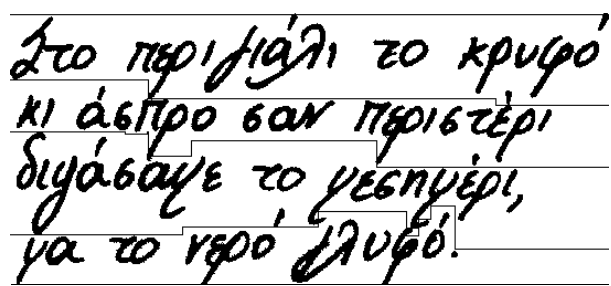 Στο περιγιάλι το κρυφό
κι άσπρο σαν περιστέρι
διψάσαμε το μεσημέρι,
μα το νερό γλυφό.